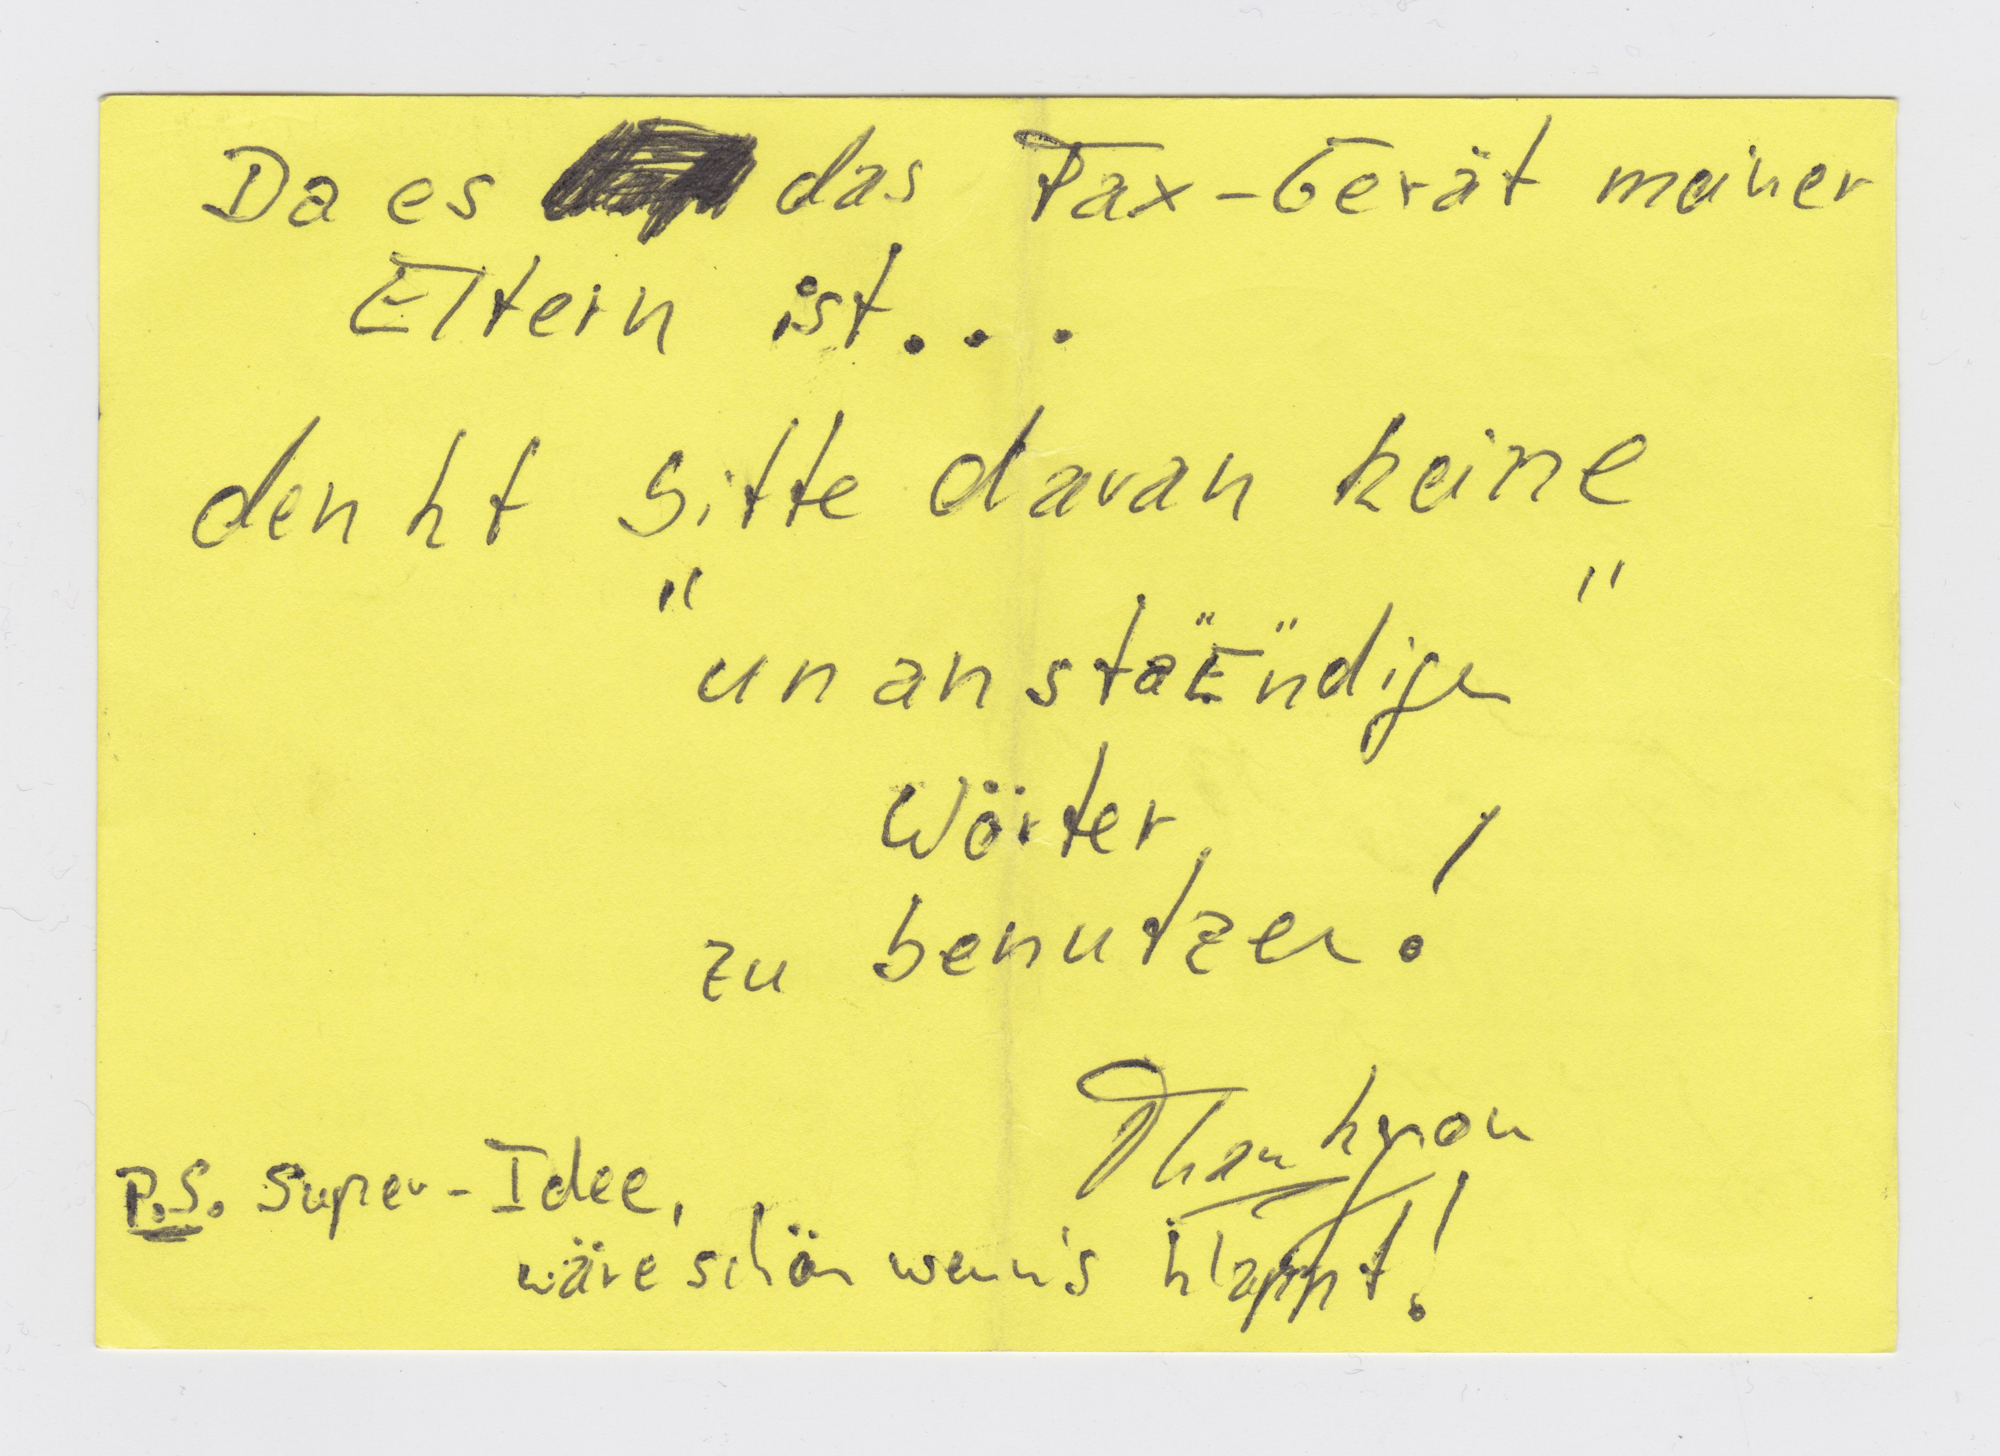 Da es das Fax-Gerät meiner
Eltern ist...
denkt bitte daran keine
" "
unanstaËn̈dige
Wörter
zu benutzen!
Thank you
P.S. Super-Idee,
wäre schön wenn's klappt!